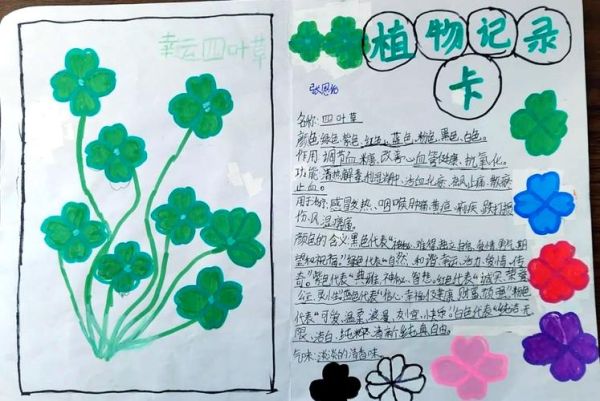 幸云四叶草
植物记录
卡
名称:四叶草
颜色:绿色,紫色,红色,蓝色,粉色,黑色,白色。
作用:调节血糖,改善心血管健康,抗氧化。
功能:清热解毒,利湿消肿、活血化瘀、祛风止痛、散瘀
止血。
感冒发热、咽喉肿痛、黄疸、痢疾、跌打损
伤、风湿痹痛。
颜色的含义:黑色代表"神秘、难得、独立自信、爱情、勇气、期
望和祝福。"绿色代表"自然、和谐、幸运、活力、爱情、传
奇"紫色代表"典雅、神秘、智慧。红色代表"诚实、荣誉、
公正、蓝色代表"信心、幸福、健康、财富、
粉色
代表"可爱、温柔、浪漫、快乐。"白色代表"纯洁、无
限、洁白、纯粹、清新、纯真、自由。
气味:淡淡的清香味。